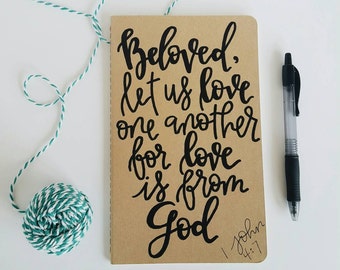 Beloved,
let us love
one another
for love
is from
God
1 John
4:7